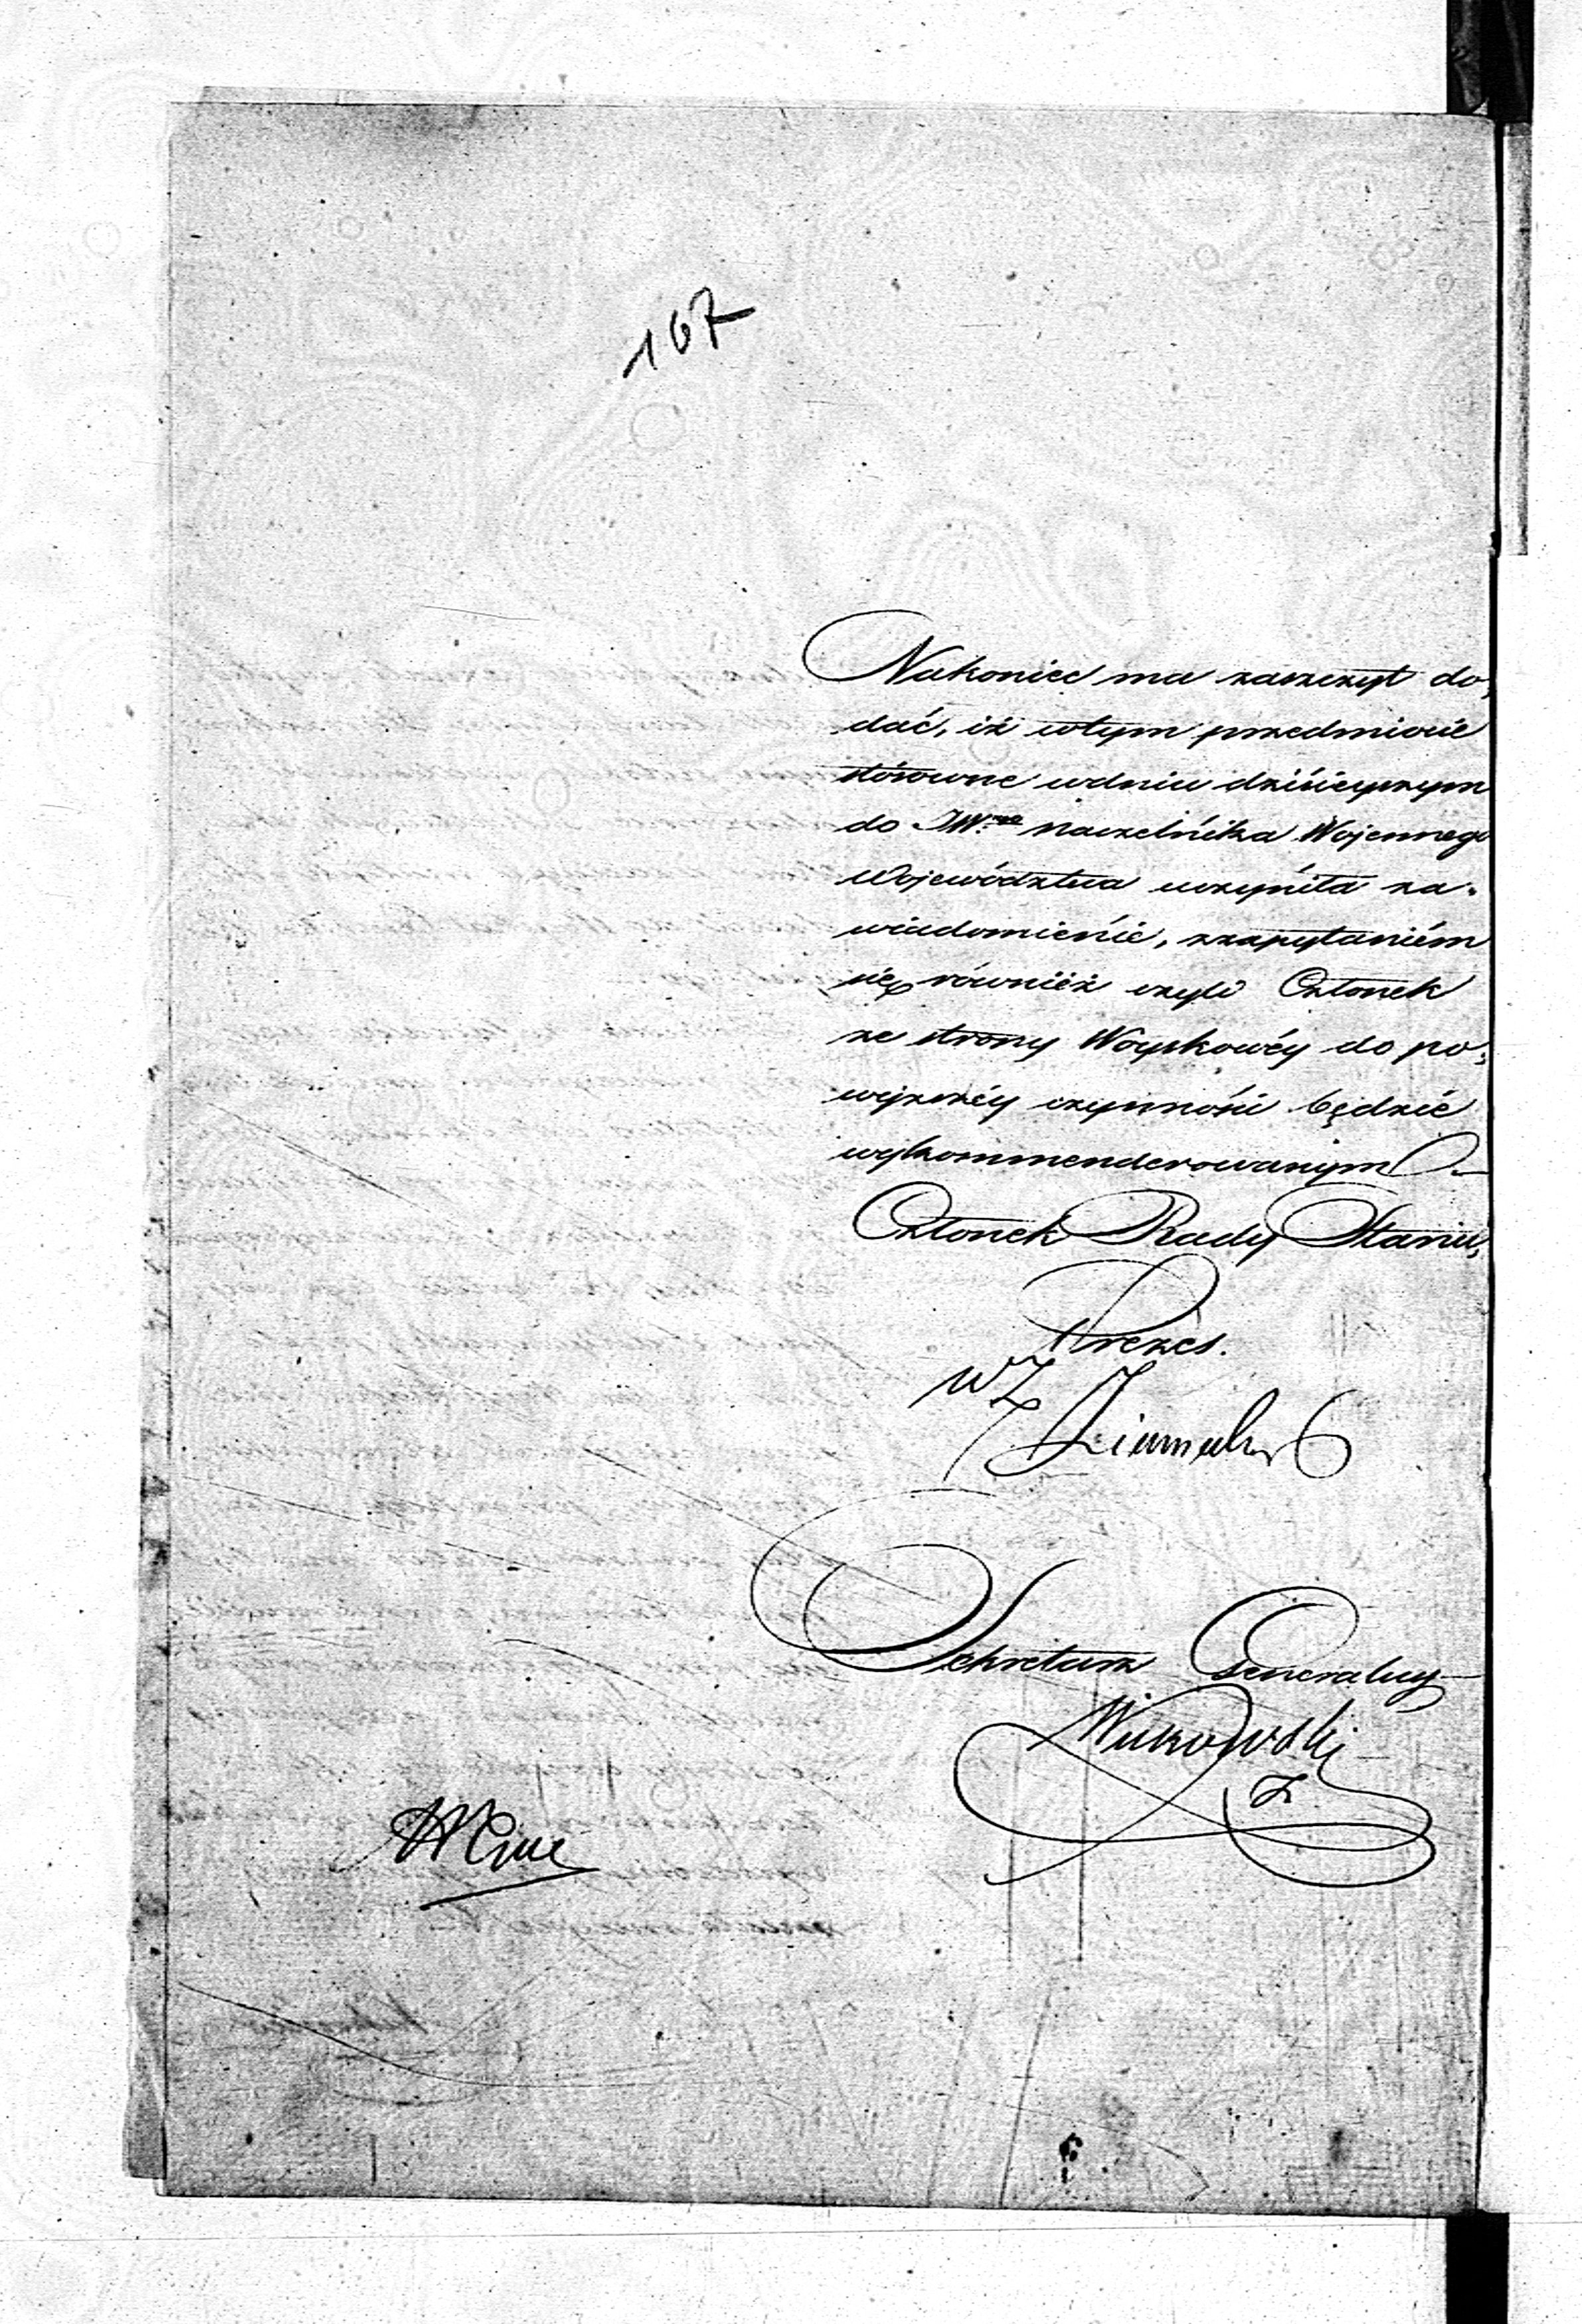 167
Nakoniec ma zaszczyt do,
dać, iż wtym przedmiocie
stósowne wdniu dzisieyszym
do JW.go naczelnika Wojennego
Województwa uczyniła za,
wiadomienie, zzapytaniem
się również czyli Członek
ze strony Woyskowéy do po,
wyższéy czynności będzie
wykommenderowanym
Członek Rady Stanu,
Prezes.
WZ
Sekretarz Generalny